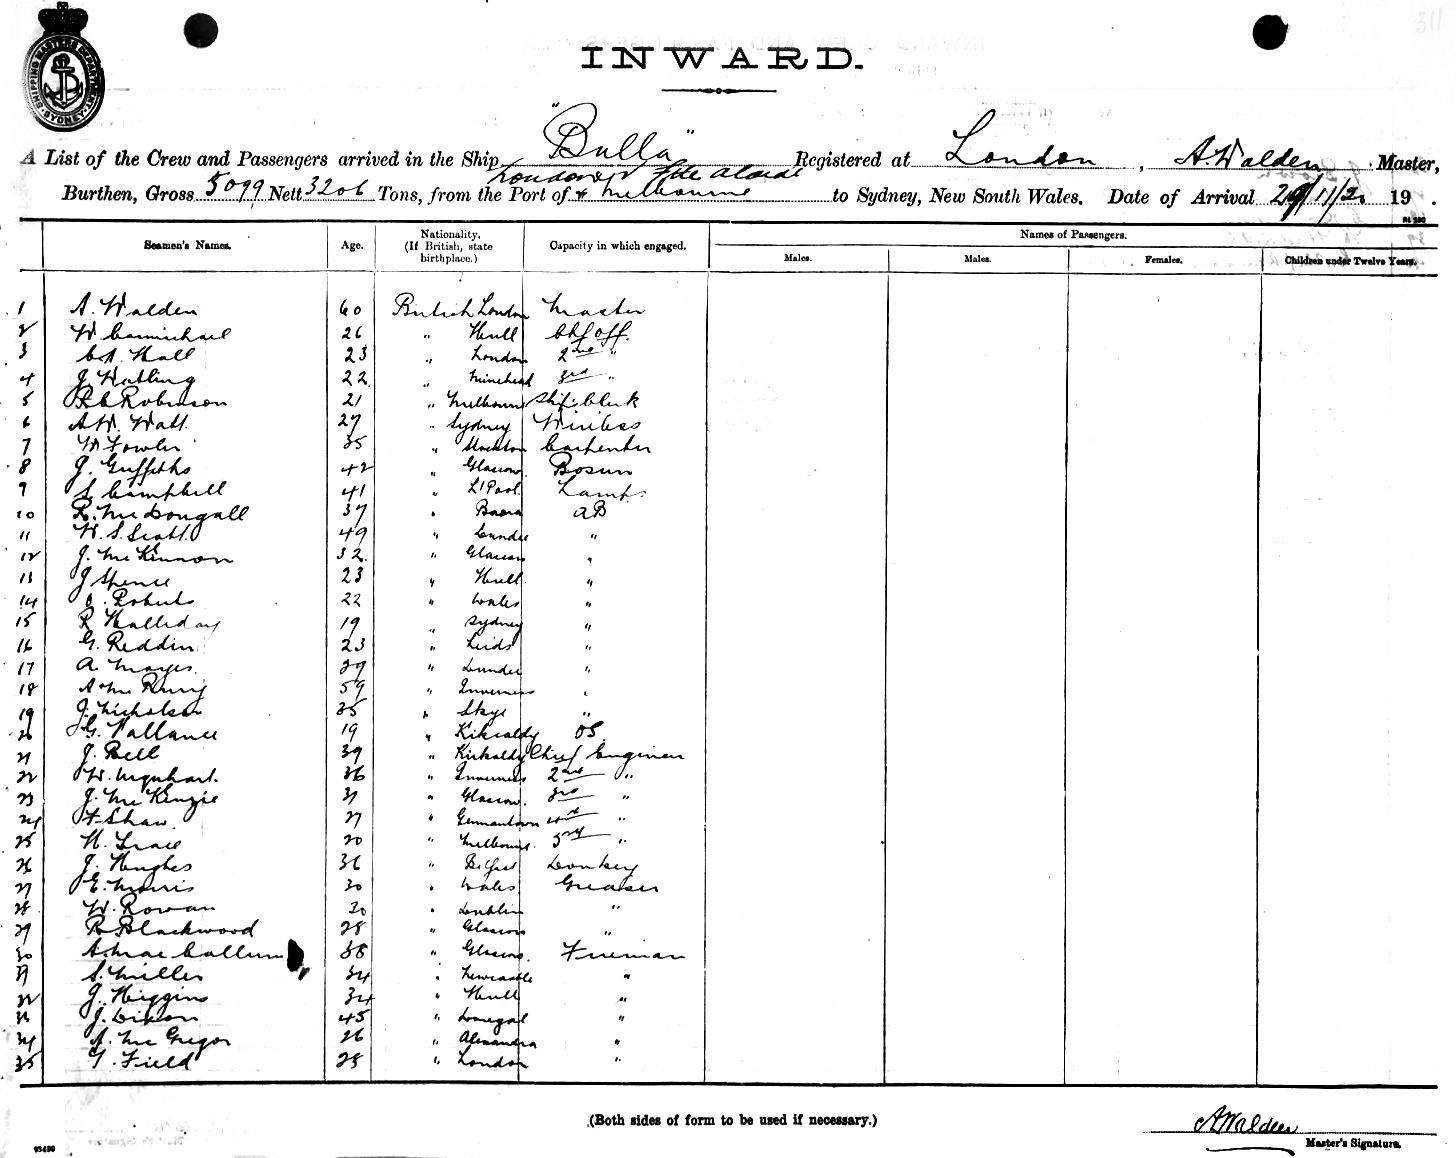 SHIPPING MASTERS DEPARTMENT SYDNEY
INWARD.
A List of the Crew and Passengers arrived in the Ship "Bulla" Registered at London, A. Walden Master,
Burthen, Gross 5099 Nett 3206 Tons, from the Port of London & Melbourne to Sydney, New South Wales. Date of Arrival 29/11/2. 19 .
Seamen's Names. Age. Nationality. (If British, state birthplace.) Capacity in which engaged. Names of Passengers.
Males. Males. Females. Children under Twelve Years.
1 A. Walden 60 British London Master
2 W Carmichael 26 " Hull Chf Off.
3 C.A. Hall 23 " London 2nd "
4 J Watling 22 " Minehead 3rd "
5 Robinson 21 " Melbourne Ships Clerk
6 A.W. Watt 27 " Sydney Wireless
7 W Fowler 35 " Stockton Carpenter
8 J. Griffiths 42 " Glasgow Bosun
9 S Campbell 41 " L'Pool Lamps
10 R. McDougall 37 " AB
11 W. S. Scott 49 " Dundee "
12 J. McKinnon 32 " Glasgow "
13 J Spence 23 " Hull "
14 O. Roberts 22 " Wales "
15 R Halliday 19 " Sydney "
16 G. Reddin 23 " Leeds "
17 A. Mayes 29 " Dundee "
18 59 " Inverness "
19 J. Nicholson 35 " Skye "
20 G. Vallance 19 " Kirkcaldy OS
21 J. Bell 39 " Kirkcaldy Chief Engineer
22 W. Urquhart 36 " Inverness 2nd "
23 J. McKenzie 31 " Glasgow. 3rd "
24 F Shaw 27 " Germantown 4th "
25 H. Grace 20 " Melbourne. 5th "
26 J. Hughes 36 " Belfast Donkey
27 E. Morris 30 " Wales Greaser
28 W. Rowan 30 " Dublin "
29 R Blackwood 28 " Glasgow "
30 A. MacCallum 38 " Glasgow. Fireman
31 S. Miller 34 " Newcastle "
32 J. Higgins 34 " Hull "
33 J. Dixon 45 " Donegal "
34 A. McGregor 26 " Alexandra "
35 G. Field 28 " London "
(Both sides of form to be used if necessary.)
A Walden
Master's Signature.